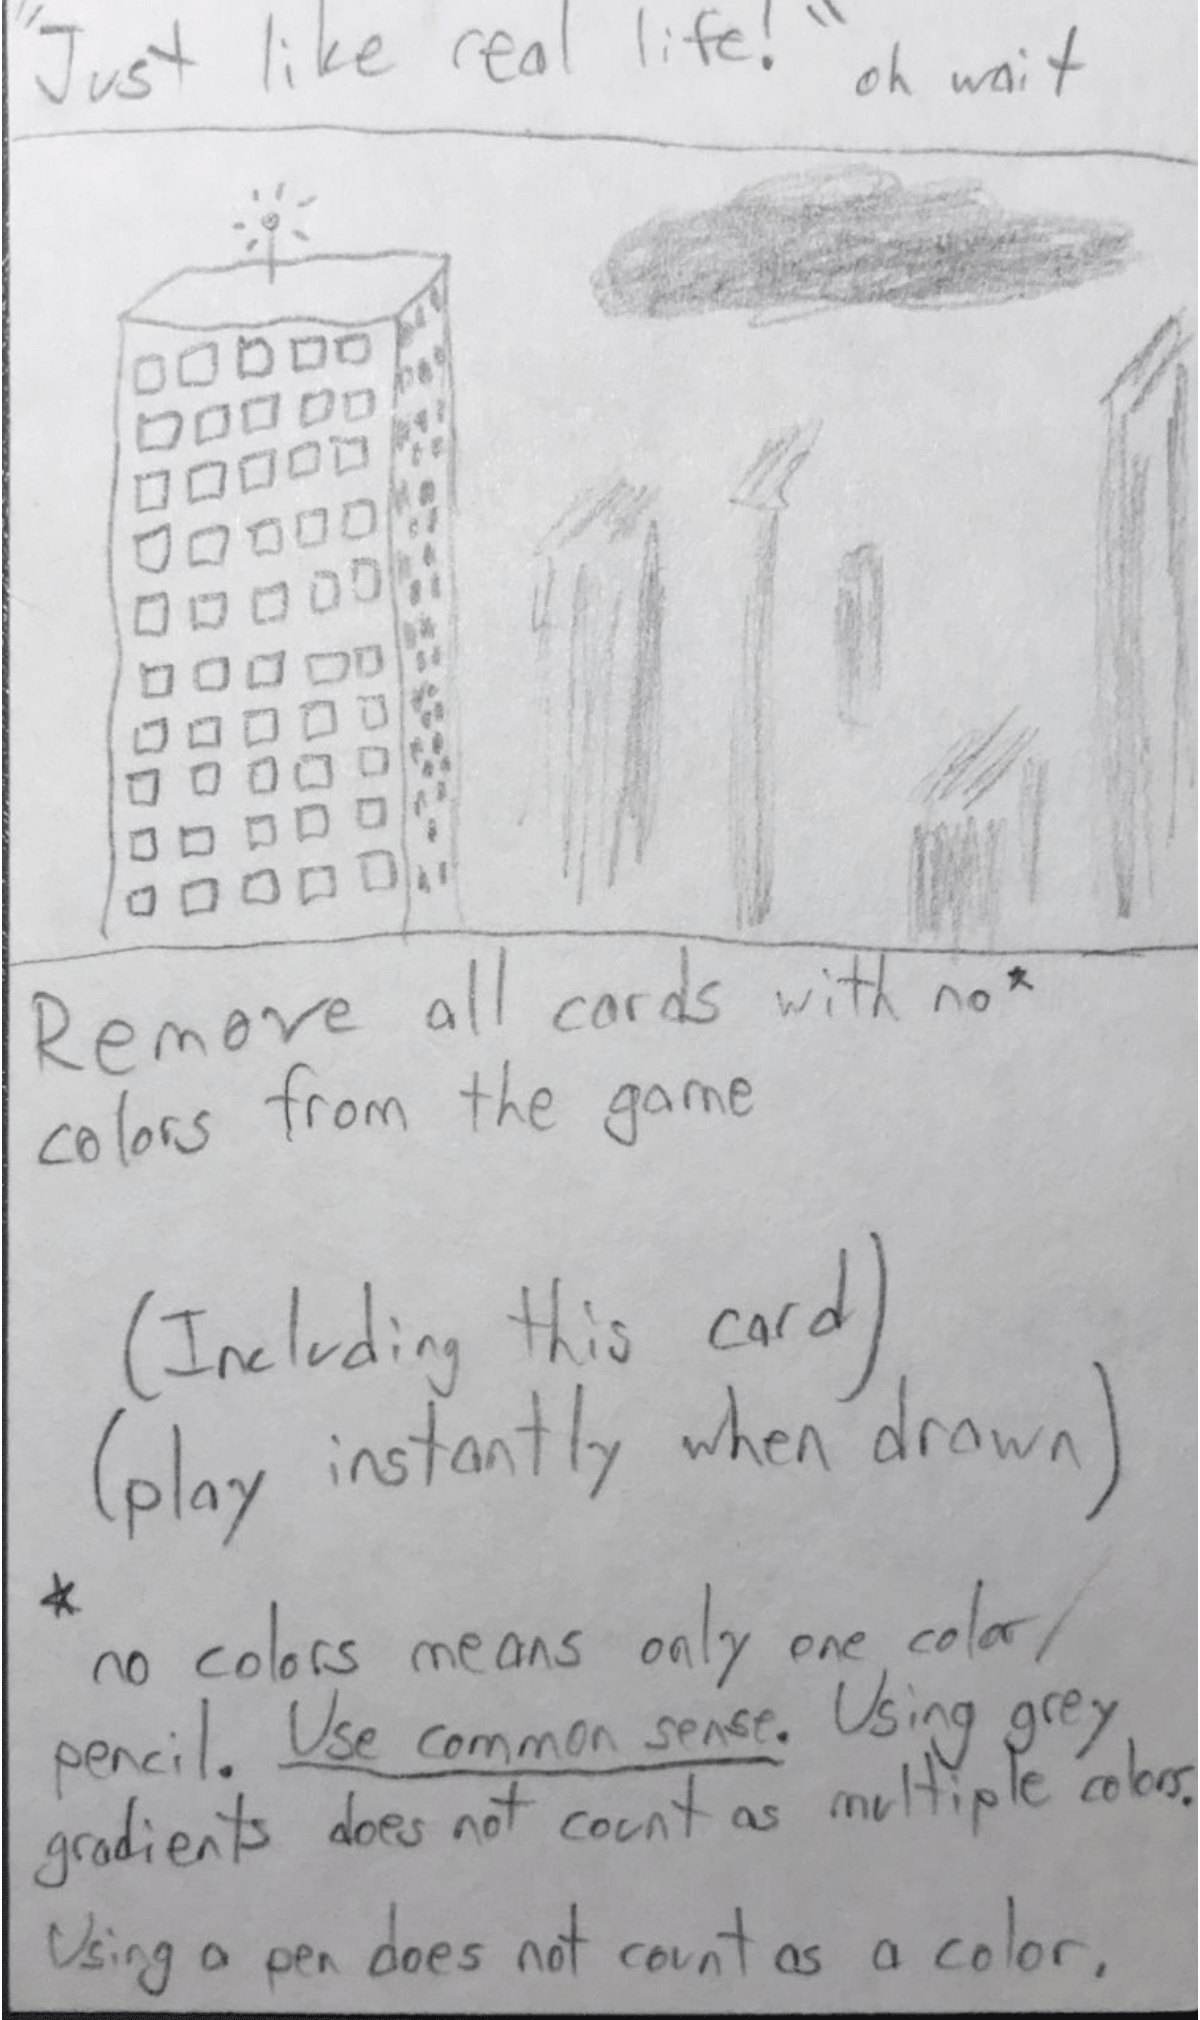 "Just like real life!" oh wait
Remove all cards with no*
colors from the game
(Including this card)
(play instantly when drawn)
*
no colors means only one color/
pencil. Use common sense. Using grey
gradients does not count as multiple colors.
Using a pen does not count as a color.